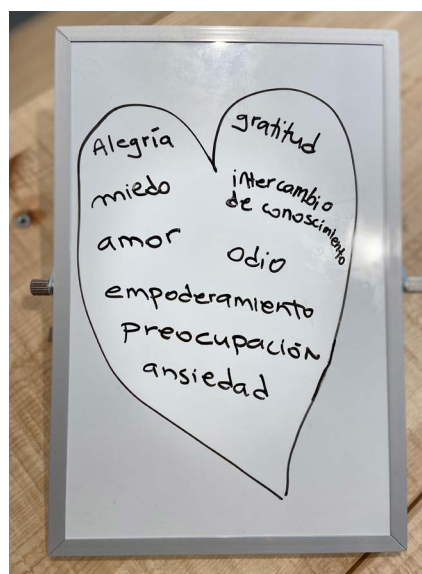 Alegría
gratitud
miedo
intercambio
de conoscimiento
amor
odio
empoderamiento
preocupación
ansiedad